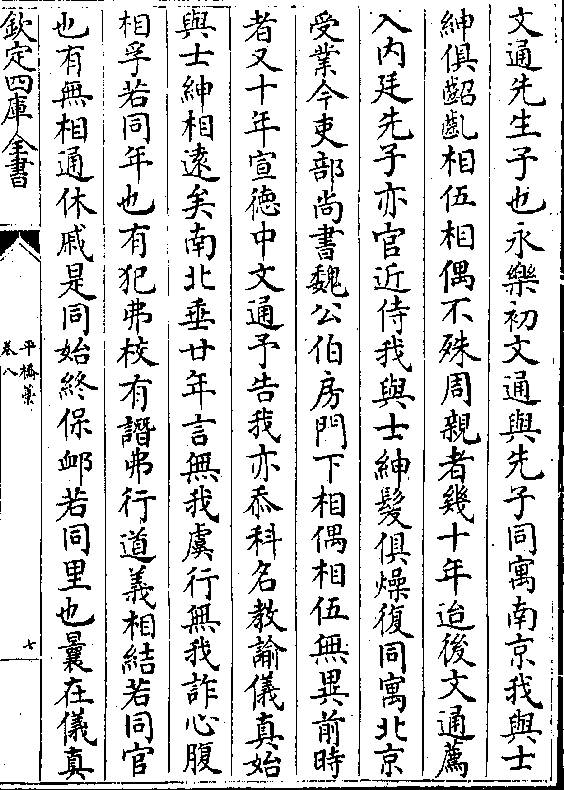 文通先生予也永樂初文通與先子同寓南京我與士
紳俱齠齓相伍相偶不殊周親者幾十年迨後文通薦
入内廷先子亦官近侍我與士紳髮俱燥復同寓北京
受業今吏部尚書魏公伯房門下相偶相伍無異前時
者又十年宣德中文通予告我亦忝科名教諭儀真始
與士紳相逺矣南北垂廿年言無我虞行無我詐心腹
相孚若同年也有犯弗校有譖弗行道義相結若同官
也有無相通休戚是同始終保䘏若同里也曩在儀真
欽定四庫全書
平橋藁
卷八
七